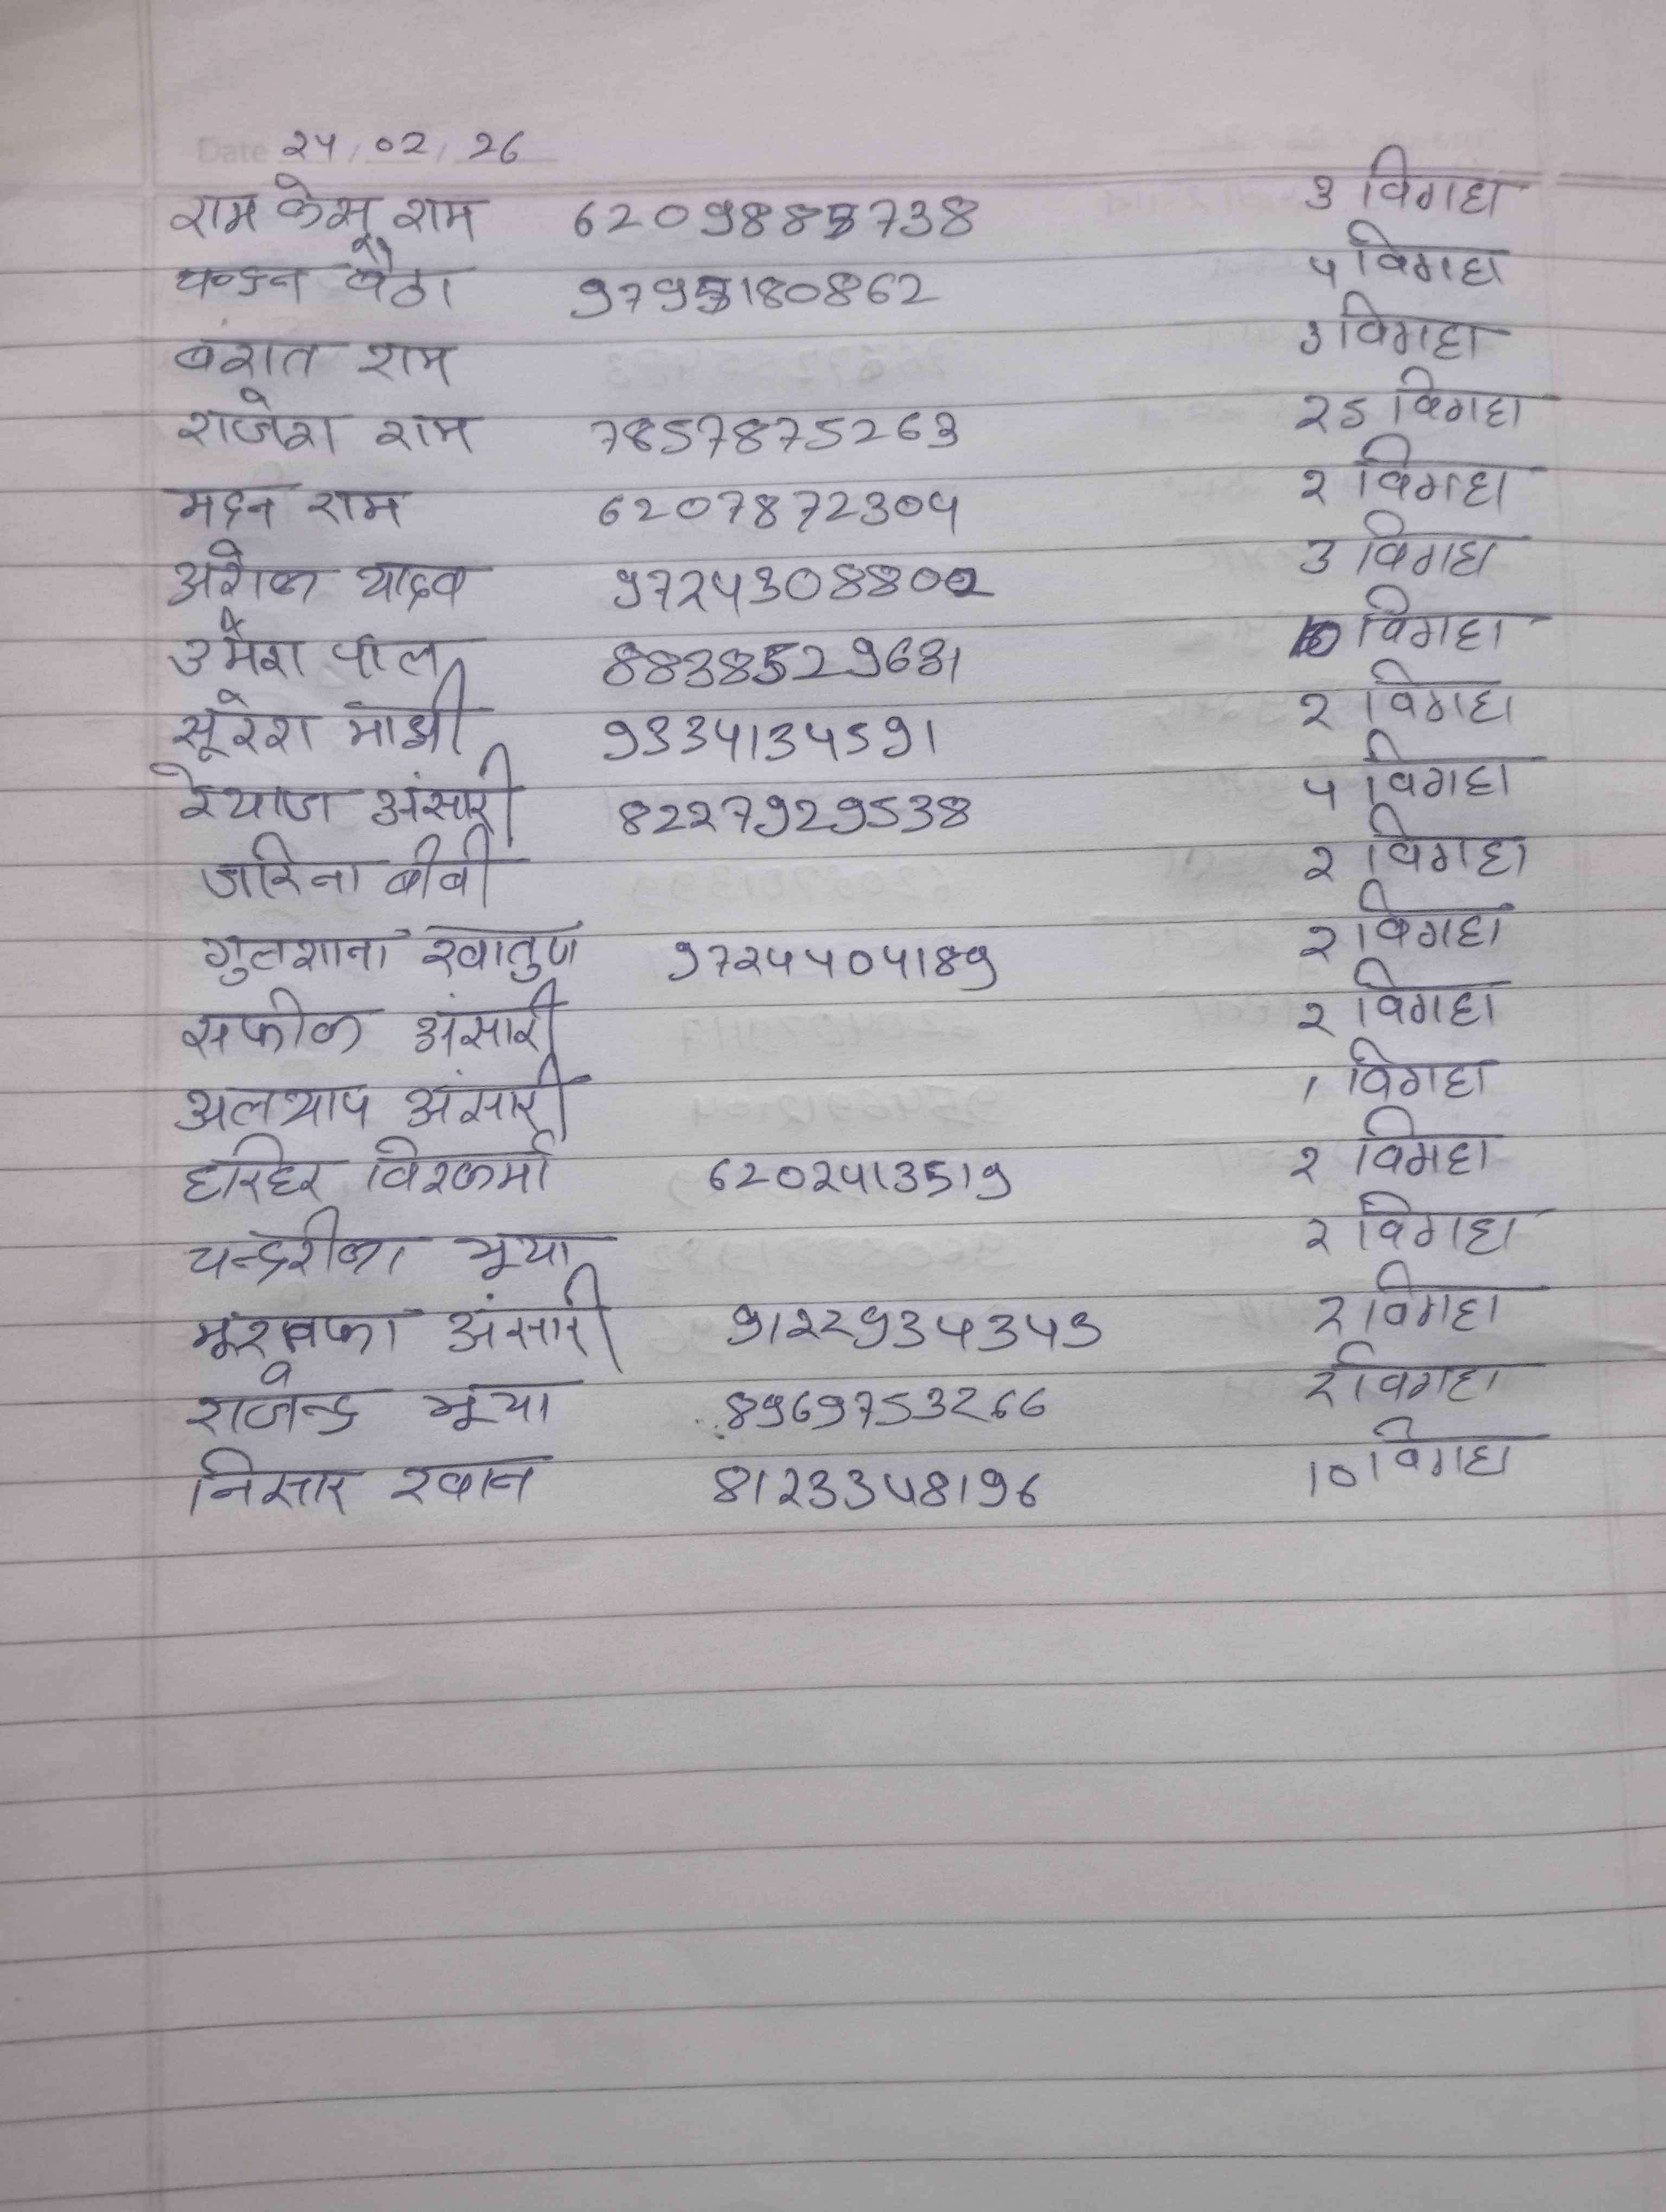 Date 24/02/26
राम केसू राम 6209885738 3 विगहा
चन्दन बैठा 9795180862 5 विगहा
बरात राम 3 विगहा
राजेश राम 7857875263 25 विगहा
मदन राम 6207872304 2 विगहा
अशोक यादव 9724308802 3 विगहा
उमेश पाल 8838529631 10 विगहा
सूरेश माझी 9334134591 2 विगहा
रेयाज अंसारी 8227929538 5 विगहा
जरिना बीवी 2 विगहा
गुलशाना खातुण 9724404189 2 विगहा
सफीक अंसारी 2 विगहा
अंसारी 1 विगहा
हरिहर विश्कर्मा 6202413519 2 विगहा
भूया 2 विगहा
अंसारी 9122934343 2 विगहा
राजेन्द्र भूया 8969753266 2 विगहा
निसार खान 8123348196 10 विगहा